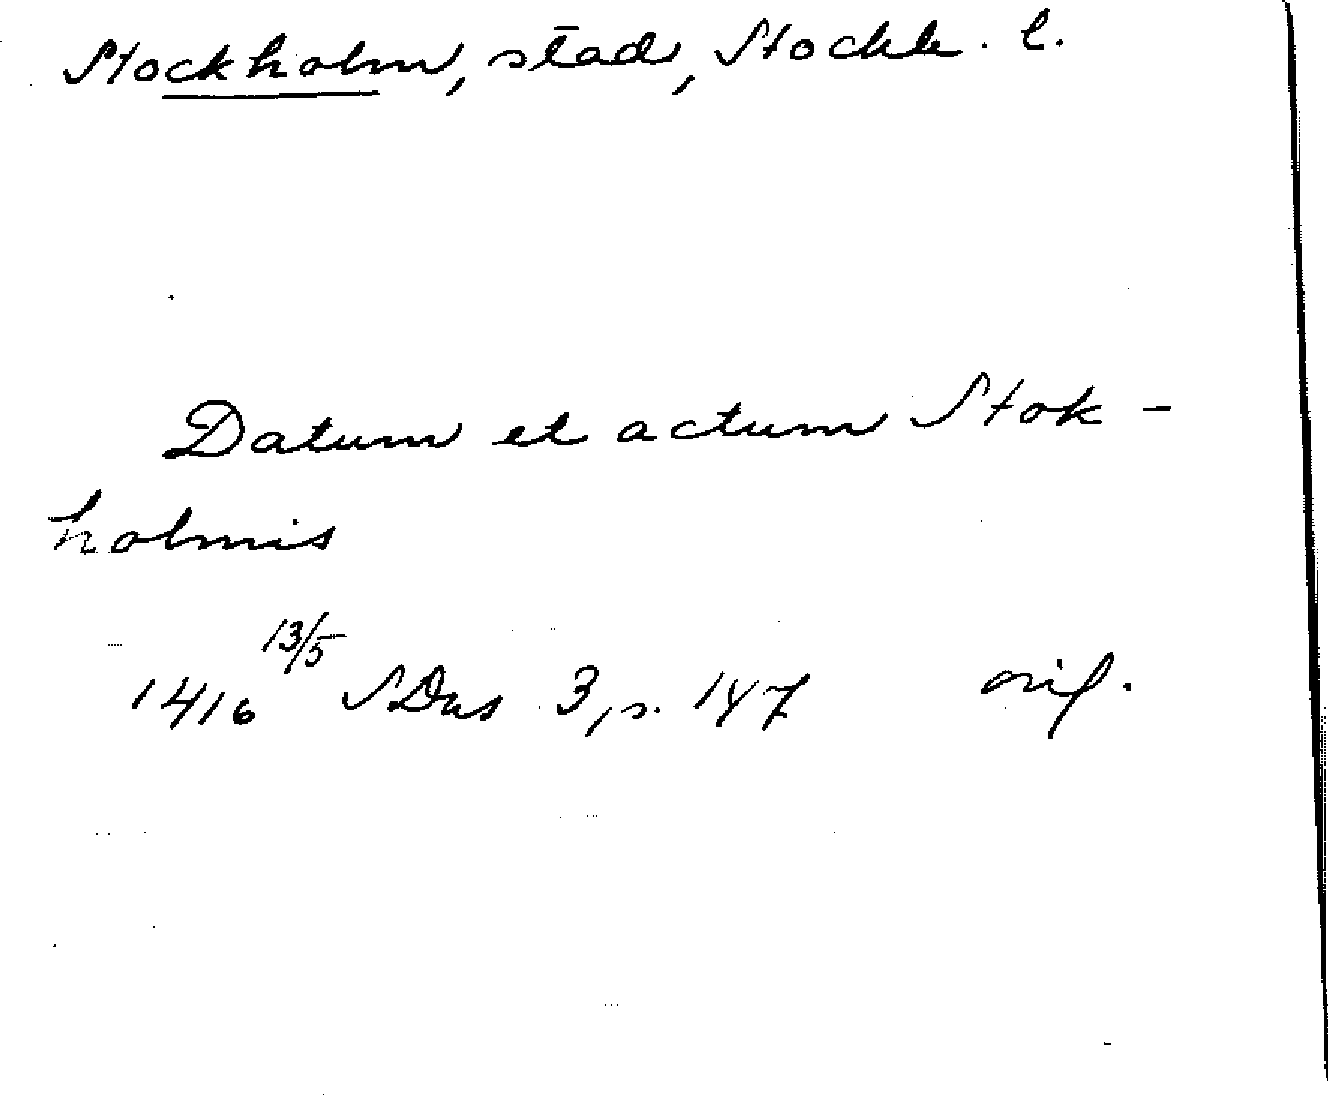 Stockholm, stad, Stockh. l.
Datum et actum Stok-
holmis
1416 13/5 SDns 3, s. 147 orig.